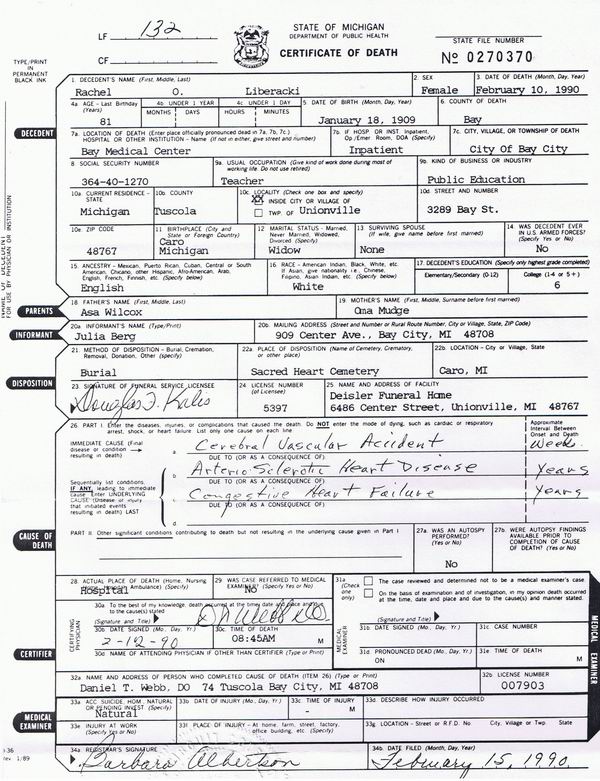 LF 132
STATE OF MICHIGAN
DEPARTMENT OF PUBLIC HEALTH
CF
CERTIFICATE OF DEATH
STATE FILE NUMBER
Nº 0270370
TYPE/PRINT
IN
PERMANENT
BLACK INK
1. DECEDENT'S NAME (First, Middle, Last)
Rachel O. Liberacki
2. SEX
Female
3. DATE OF DEATH (Month, Day, Year)
February 10, 1990
4a. AGE - Last Birthday (Years)
81
4b. UNDER 1 YEAR
MONTHS DAYS
4c. UNDER 1 DAY
HOURS MINUTES
5. DATE OF BIRTH (Month, Day, Year)
January 18, 1909
6. COUNTY OF DEATH
Bay
DECEDENT
7a. LOCATION OF DEATH (Enter place officially pronounced dead in 7a, 7b, 7c.)
HOSPITAL OR OTHER INSTITUTION - Name (If not in either, give street and number)
Bay Medical Center
7b. IF HOSP. OR INST. Inpatient, Op./Emer. Room, DOA (Specify)
Inpatient
7c. CITY, VILLAGE, OR TOWNSHIP OF DEATH
City Of Bay City
8. SOCIAL SECURITY NUMBER
364-40-1270
9a. USUAL OCCUPATION (Give kind of work done during most of working life. Do not use retired)
Teacher
9b. KIND OF BUSINESS OR INDUSTRY
Public Education
10a. CURRENT RESIDENCE - STATE
Michigan
10b. COUNTY
Tuscola
10c. LOCALITY (Check one box and specify)
XX INSIDE CITY OR VILLAGE OF
TWP. OF Unionville
10d. STREET AND NUMBER
3289 Bay St.
10e. ZIP CODE
48767
11. BIRTHPLACE (City and State or Foreign Country)
Caro
Michigan
12. MARITAL STATUS - Married, Never Married, Widowed, Divorced (Specify)
Widow
13. SURVIVING SPOUSE (If wife, give name before first married)
None
14. WAS DECEDENT EVER IN U.S. ARMED FORCES? (Specify Yes or No)
No
15. ANCESTRY - Mexican, Puerto Rican, Cuban, Central or South American, Chicano, other Hispanic, Afro-American, Arab, English, French, Finnish, etc. (Specify below)
English
16. RACE - American Indian, Black, White, etc. If Asian, give nationality i.e., Chinese, Filipino, Asian Indian, etc. (Specify below)
White
17. DECEDENT'S EDUCATION (Specify only highest grade completed)
Elementary/Secondary (0-12) College (1-4 or 5+)
6
PARENTS
18. FATHER'S NAME (First, Middle, Last)
Asa Wilcox
19. MOTHER'S NAME (First, Middle, Surname before first married)
Oma Mudge
INFORMANT
20a. INFORMANT'S NAME (Type/Print)
Julia Berg
20b. MAILING ADDRESS (Street and Number or Rural Route Number, City or Village, State, ZIP Code)
909 Center Ave., Bay City, MI 48708
DISPOSITION
21. METHOD OF DISPOSITION - Burial, Cremation, Removal, Donation, Other (specify)
Burial
22a. PLACE OF DISPOSITION (Name of Cemetery, Crematory, or other place)
Sacred Heart Cemetery
22b. LOCATION - City or Village, State
Caro, MI
23. SIGNATURE OF FUNERAL SERVICE LICENSEE
24. LICENSE NUMBER (of Licensee)
5397
25. NAME AND ADDRESS OF FACILITY
Deisler Funeral Home
6486 Center Street, Unionville, MI 48767
26. PART I. Enter the diseases, injuries, or complications that caused the death. Do NOT enter the mode of dying, such as cardiac or respiratory arrest, shock, or heart failure. List only one cause on each line.
Approximate Interval Between Onset and Death
IMMEDIATE CAUSE (Final disease or condition resulting in death)
a. Cerebral Vascular Accident Week
DUE TO (OR AS A CONSEQUENCE OF):
b. Arterio Sclerotic Heart Disease Years
Sequentially list conditions, IF ANY, leading to immediate cause. Enter UNDERLYING CAUSE (Disease or injury that initiated events resulting in death) LAST
DUE TO (OR AS A CONSEQUENCE OF):
c. Congestive Heart Failure Years
DUE TO (OR AS A CONSEQUENCE OF):
d.
CAUSE OF DEATH
PART II. Other significant conditions contributing to death but not resulting in the underlying cause given in Part I
27a. WAS AN AUTOPSY PERFORMED? (Yes or No)
No
27b. WERE AUTOPSY FINDINGS AVAILABLE PRIOR TO COMPLETION OF CAUSE OF DEATH? (Yes or No)
28. ACTUAL PLACE OF DEATH (Home, Nursing Home, Hospital, Ambulance) (Specify)
Hospital
29. WAS CASE REFERRED TO MEDICAL EXAMINER? (Specify Yes or No)
No
30a. To the best of my knowledge, death occurred at the time, date and place and due to the cause(s) stated
(Signature and Title)
31a. (Check one only)
The case reviewed and determined not to be a medical examiner's case.
On the basis of examination and of investigation, in my opinion death occurred at the time, date and place and due to the cause(s) and manner stated.
(Signature and Title)
CERTIFYING PHYSICIAN
MEDICAL EXAMINER
30b. DATE SIGNED (Mo., Day, Yr.)
2-12-90
30c. TIME OF DEATH
08:45AM M
31b. DATE SIGNED (Mo., Day, Yr.)
31c. CASE NUMBER
30d. NAME OF ATTENDING PHYSICIAN IF OTHER THAN CERTIFIER (Type or Print)
31d. PRONOUNCED DEAD (Mo., Day, Yr.)
ON
31e. TIME OF DEATH
M
CERTIFIER
32a. NAME AND ADDRESS OF PERSON WHO COMPLETED CAUSE OF DEATH (ITEM 26) (Type or Print)
Daniel T. Webb, DO 74 Tuscola Bay City, MI 48708
32b. LICENSE NUMBER
007903
MEDICAL EXAMINER
33a. ACC., SUICIDE, HOM., NATURAL OR PENDING INVEST. (Specify)
Natural
33b. DATE OF INJURY (Mo., Day, Yr.)
33c. TIME OF INJURY
- M
33d. DESCRIBE HOW INJURY OCCURRED
33e. INJURY AT WORK (Specify Yes or No)
33f. PLACE OF INJURY - At home, farm, street, factory, office building, etc. (Specify)
33g. LOCATION - Street or R.F.D. No. City, Village or Twp. State
34a. REGISTRAR'S SIGNATURE
Barbara Albertson
34b. DATE FILED (Month, Day, Year)
February 15, 1990